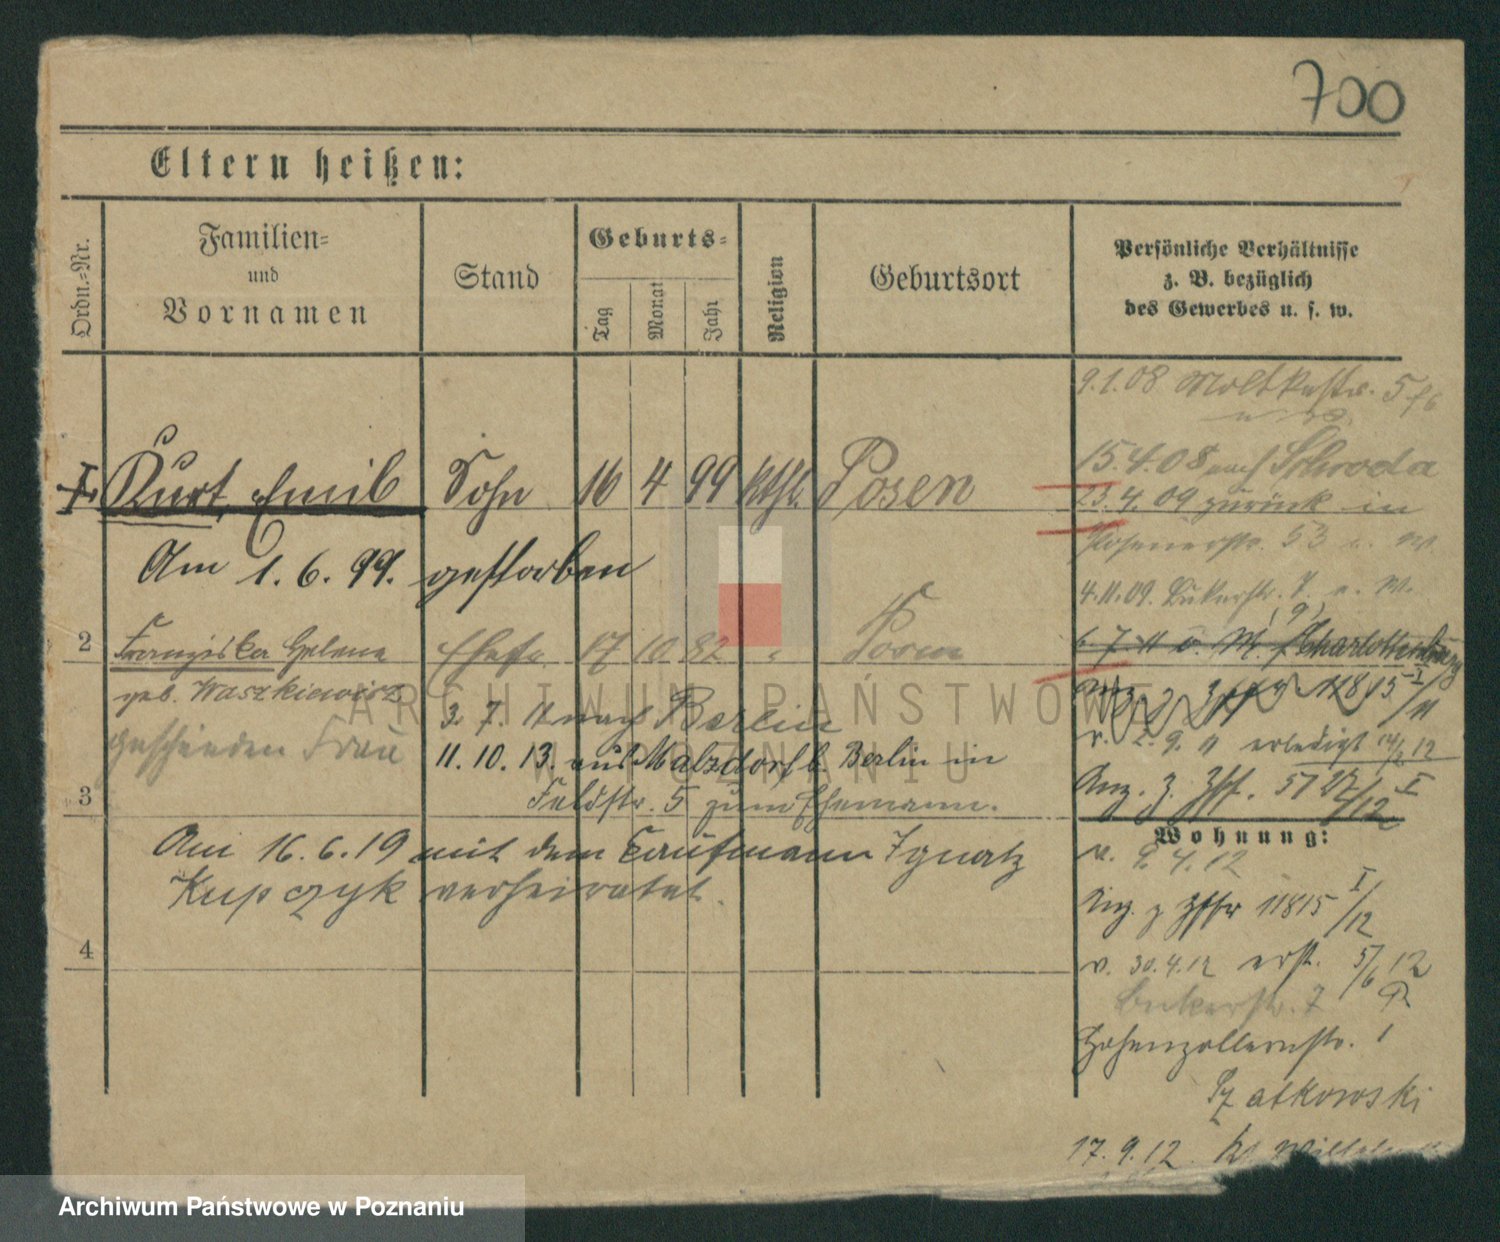 700
Eltern heißen:
Ordn.-Nr.
Familien-
und
Vornamen
Stand
Geburts-
Tag
Monat
Jahr
Religion
Geburtsort
Persönliche Verhältnisse
z. B. bezüglich
des Gewerbes u. s. w.
9.1.08 Moltkestr. 5
15.4.08 nach Schroda
1. Kurt, Emil Sohn 16 4 99 kthl. Posen
23.4.09 zurück in
Posenerstr. 53
Am 1.6.99. gestorben
4.11.09. Bukerstr. 7.
2 Franziska Helena Ehefr. 17 10 82 " Posen
6 7 11 v. M. Charlottenburg
geb. Waszkiewicz
11815 I/11
3. 7. 11 nach Berlin
geschieden Frau
v. 2.9.11 erledigt 14/2 12
11. 10. 13. aus Malsdorf b. Berlin in
Anz. z. 5727 I/12
3 Feldstr. 5 zum Ehemann.
Wohnung:
Am 16.6.19 mit dem Kaufmann Ignatz
v. 9.4.12
Kupczyk verheiratet.
Anz. z 11815 I/12
4
v. 30.4.12 erst. 5/6 12
Bukerstr. 7
Hohenzollernstr. 1
17.9.12
ARCHIWUM PAŃSTWOWE
W POZNANIU
Archiwum Państwowe w Poznaniu